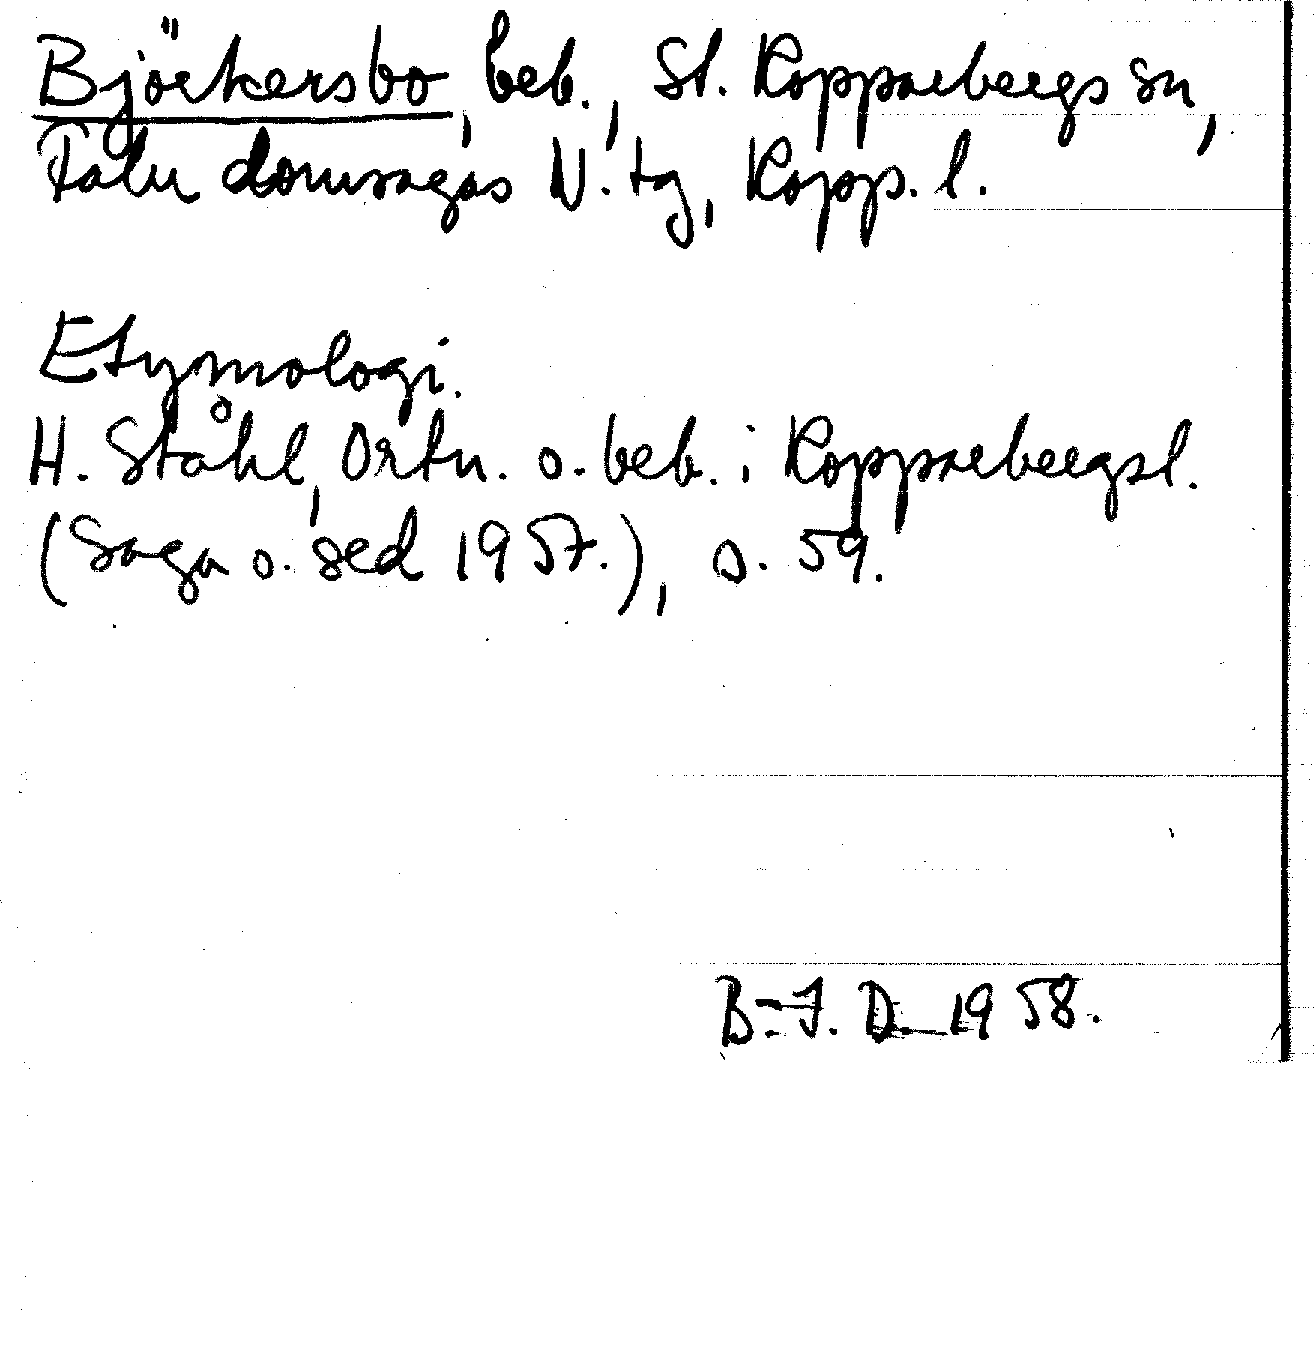 Björkersbo, beb., St. Kopparbergs sn,
Falu domsagas N. tg, Kopp. l.
Etymologi.
H. Ståhl, Ortn. o. beb. i Kopparbergsl.
(Saga o. sed 1957.), s. 59.
B-J. D. 1958.